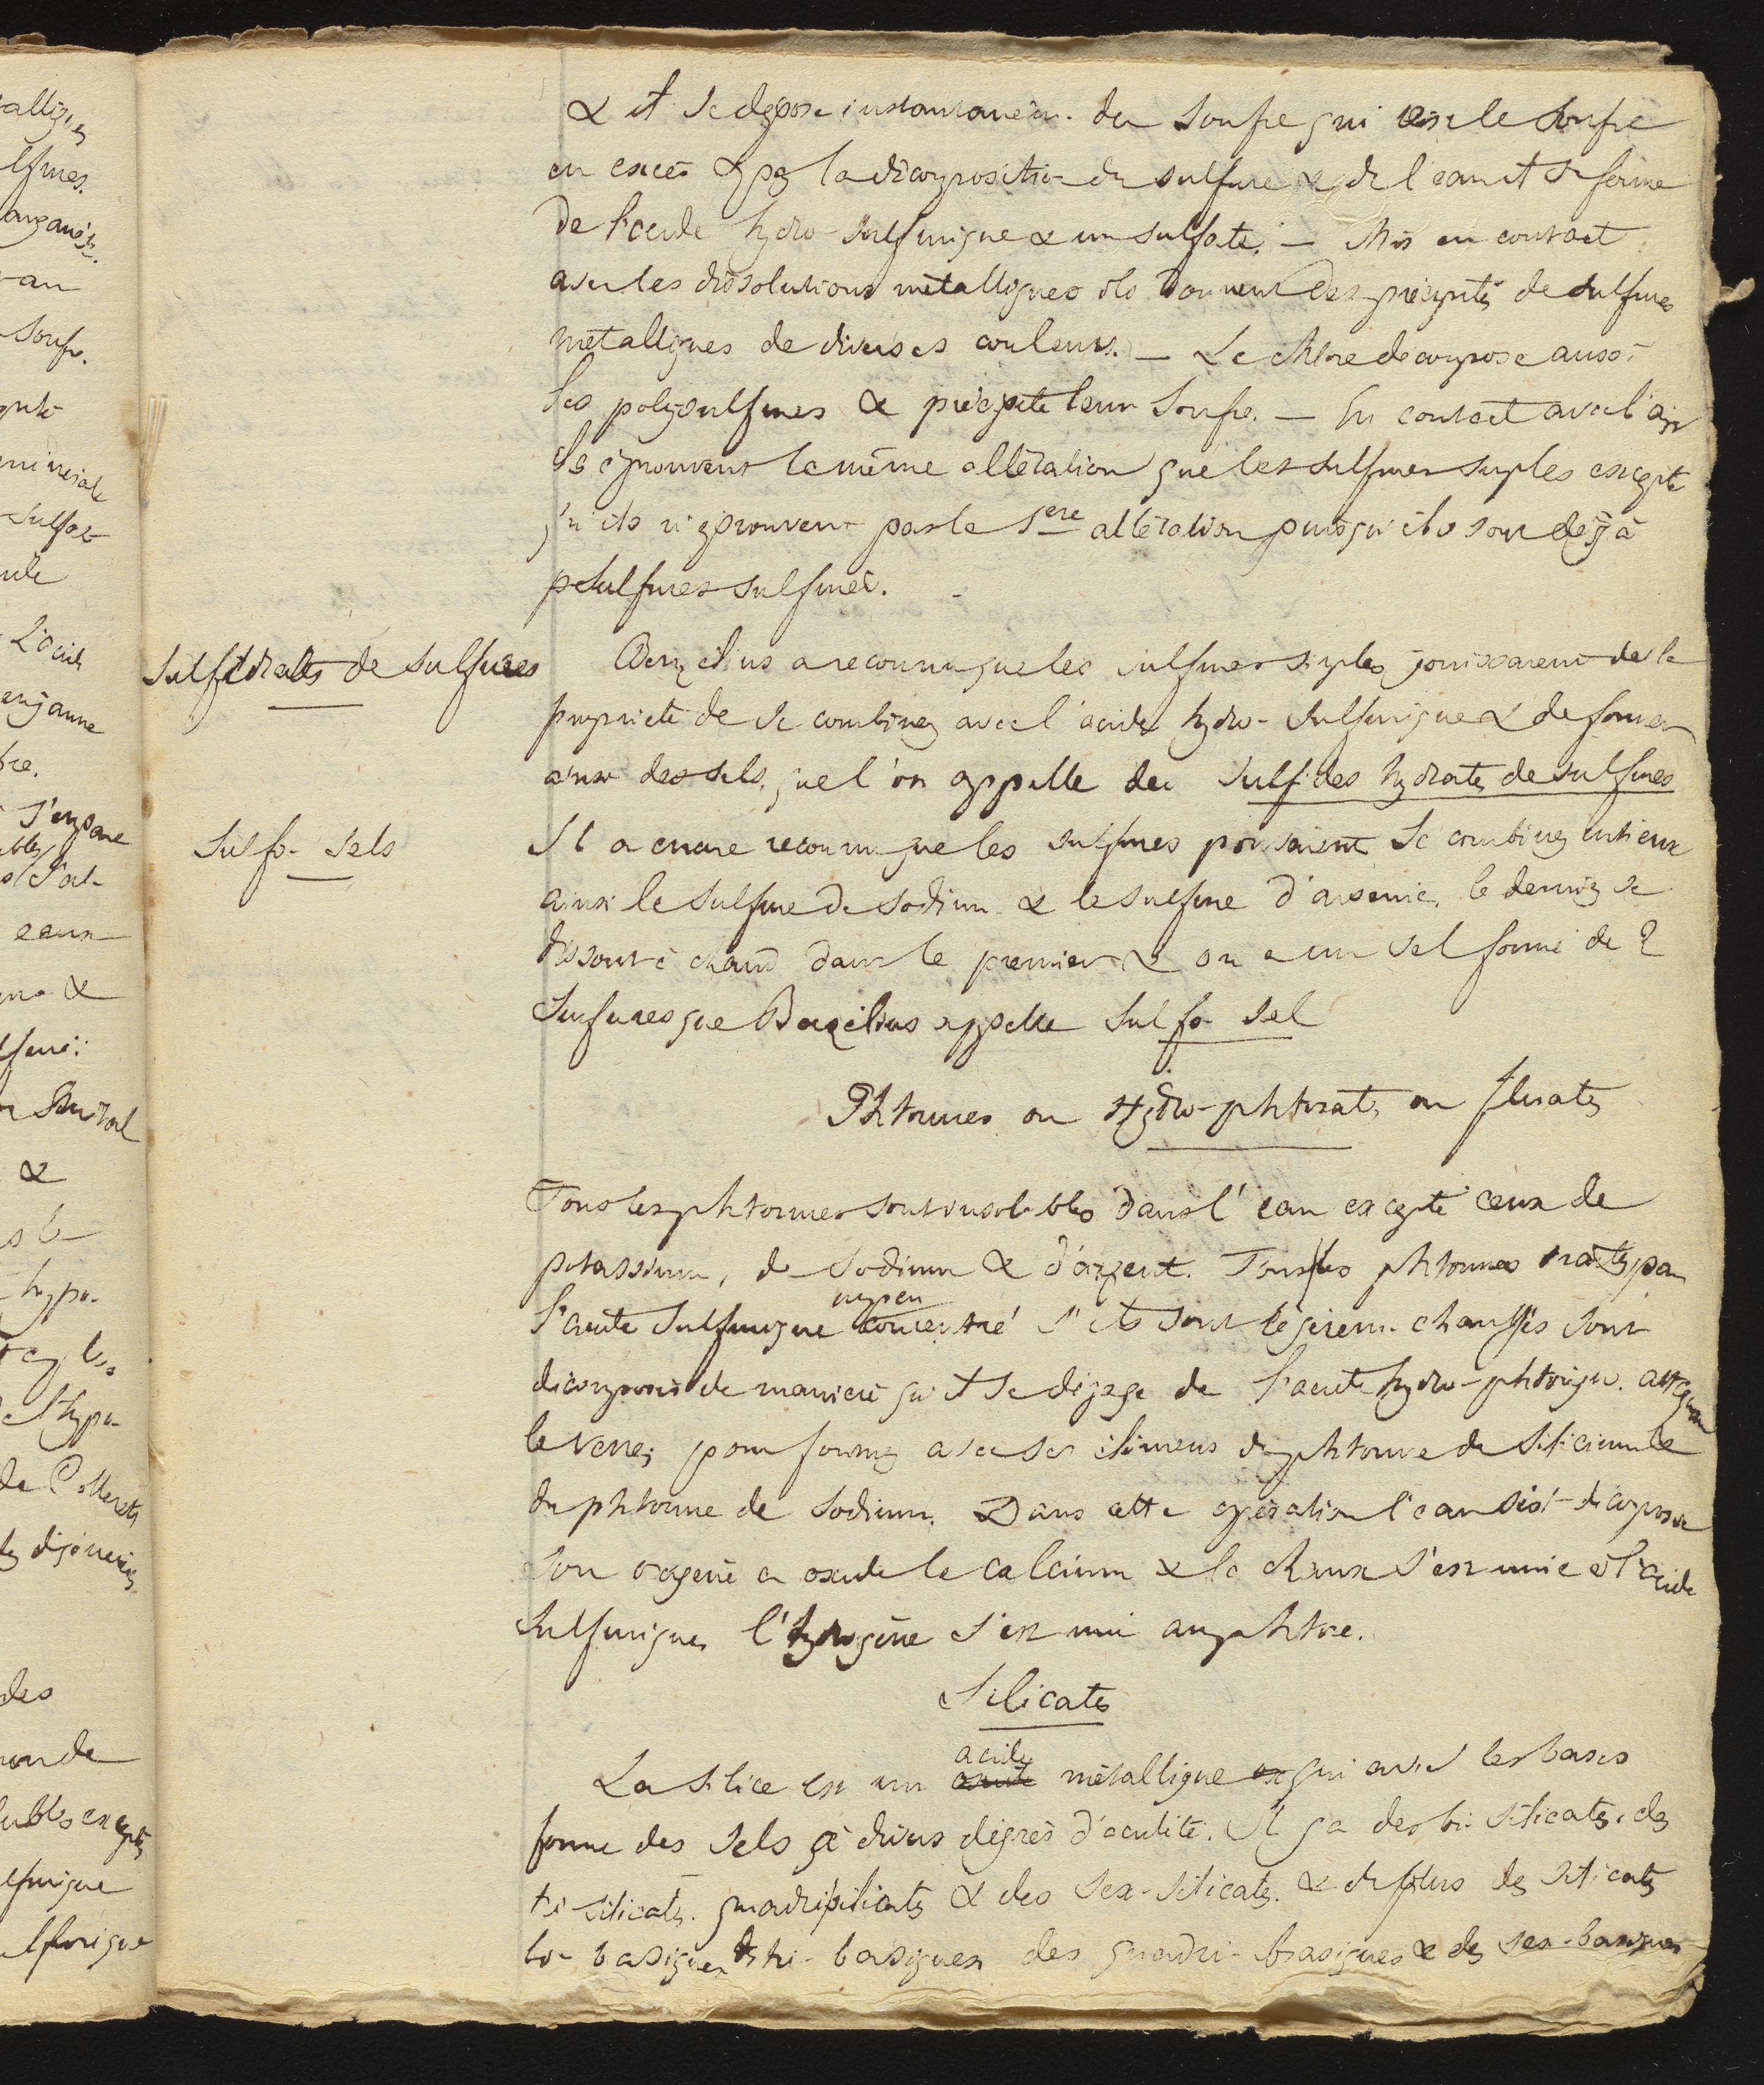 & il se dépose instantaném. du soufre qui est le soufre
en excès & par la décomposition du sulfure & de l'eau il se forme
de l'acide hydro-sulfurique & un sulfate. — Mis en contact
avec les dissolutions métalliques ils donnent des précipités de sulfures
métalliques de diverses couleurs. — Le chlore décompose aussi
les polysulfures & précipite leur soufre. — En contact avec l'air
ils éprouvent la même altération que les sulfures simples excepté
qu'ils n'éprouvent pas la 1ere altération puisqu'ils sont déjà
sulfures sulfurés.
Sulfhydrates de sulfures
Berzélius a reconnu que les sulfures simples jouissaient de la
propriété de se combiner avec l'acide hydro-sulfurique & de former
ainsi des sels que l'on appelle des sulfides hydrates de sulfures
Sulfo-sels
Il a encore reconnu que les sulfures pouvaient se combiner entr'eux
ainsi le sulfure de sodium & le sulfure d'arsenic, le dernier se
dissout à chaud dans le premier & on a un sel formé de 2
sulfures que Berzélius appelle sulfo-sel
Phtorures ou Hydro-phtorates ou fluates
Tous les phtorures sont insolubles dans l'eau excepté ceux de
potassium, de sodium & d'argent. Tous les phtorures traités par
un peu
l'acide sulfurique concentré s'ils sont légèrem. chauffés sont
décomposés de manière qu'il se dégage de l'acide hydro-phtorique. attaquant
le verre, pour former avec ses élémens du phtorure de silicium &
du phtorure de sodium. Dans cette opération l'eau s'est décomposée
son oxigène a oxidé le calcium & la chaux s'est unie à l'acide
sulfurique, l'hydrogène s'est uni au phtore.
Silicates
acide
La silice est un métallique qui avec les bases
forme des sels à divers dégrés d'acidité. Il y a des bi-silicates, des
tri-silicates. quadrisilicates & des sex-silicates. & de plus des silicates
bi-basiques des tri-basiques des quadri-basiques & des sex-basiques